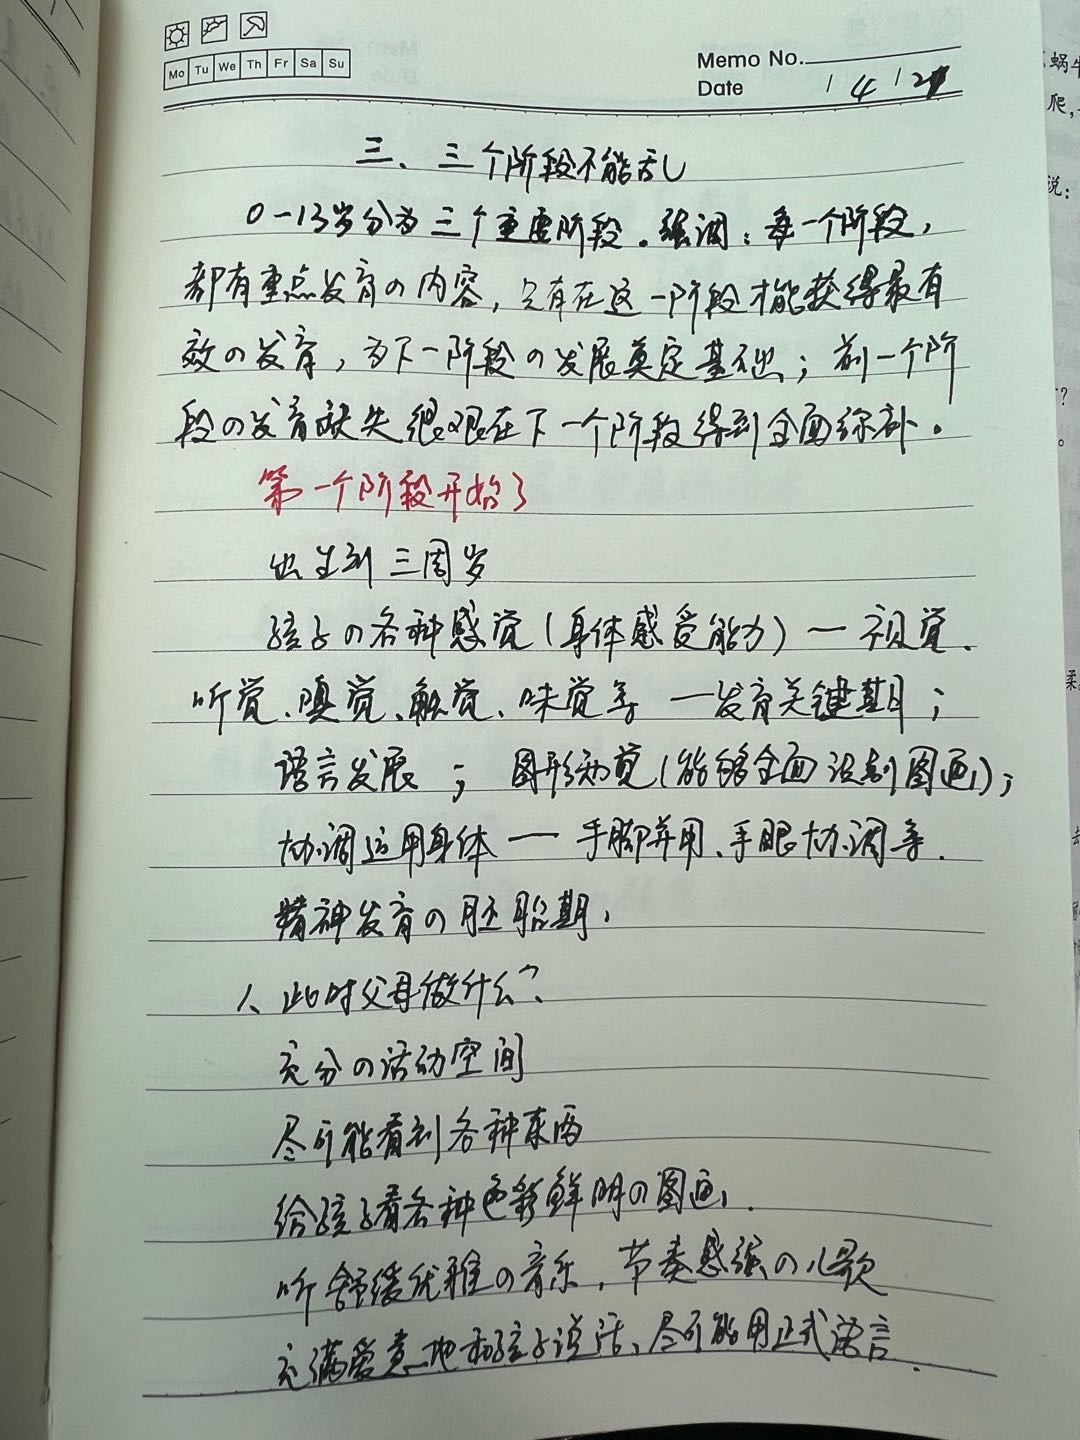 Mo Tu We Th Fr Sa Su
Memo No.
Date / 4 / 21
三、三个阶段不能乱
0-13岁分为三个重要阶段。强调：每一个阶段，
都有重点发育の内容，只有在这一阶段才能获得最有
效の发育，为下一阶段の发展奠定基础；前一个阶
段の发育缺失很难在下一个阶段得到全面弥补。
第一个阶段开始了
出生到三周岁
孩子の各种感觉（身体感受能力）—视觉、
听觉、嗅觉、触觉、味觉等—发育关键期；
语言发展；图形知觉（能够全面识别图画）；
协调运用身体—手脚并用、手眼协调等.
精神发育の胚胎期，
1、此时父母做什么？
充分の活动空间
尽可能看到各种东西
给孩子看各种色彩鲜明の图画，
听舒缓优雅の音乐，节奏感强の儿歌
充满爱意地和孩子说话、尽可能用正式语言.
蜗牛
爬，
说：